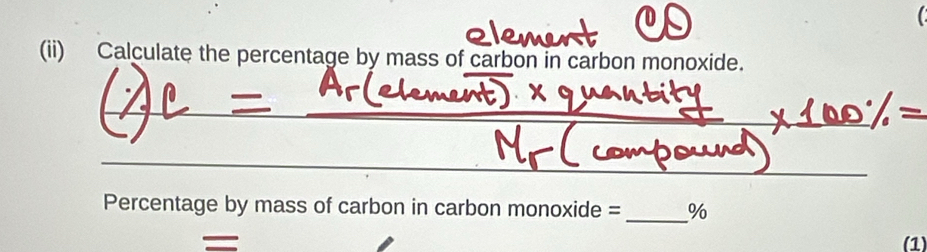 element CO
(ii) Calculate the percentage by mass of carbon in carbon monoxide.
(%)C = Ar(element) × quantity
Mr(compound) ×100% =
Percentage by mass of carbon in carbon monoxide = ______%
=
(1)